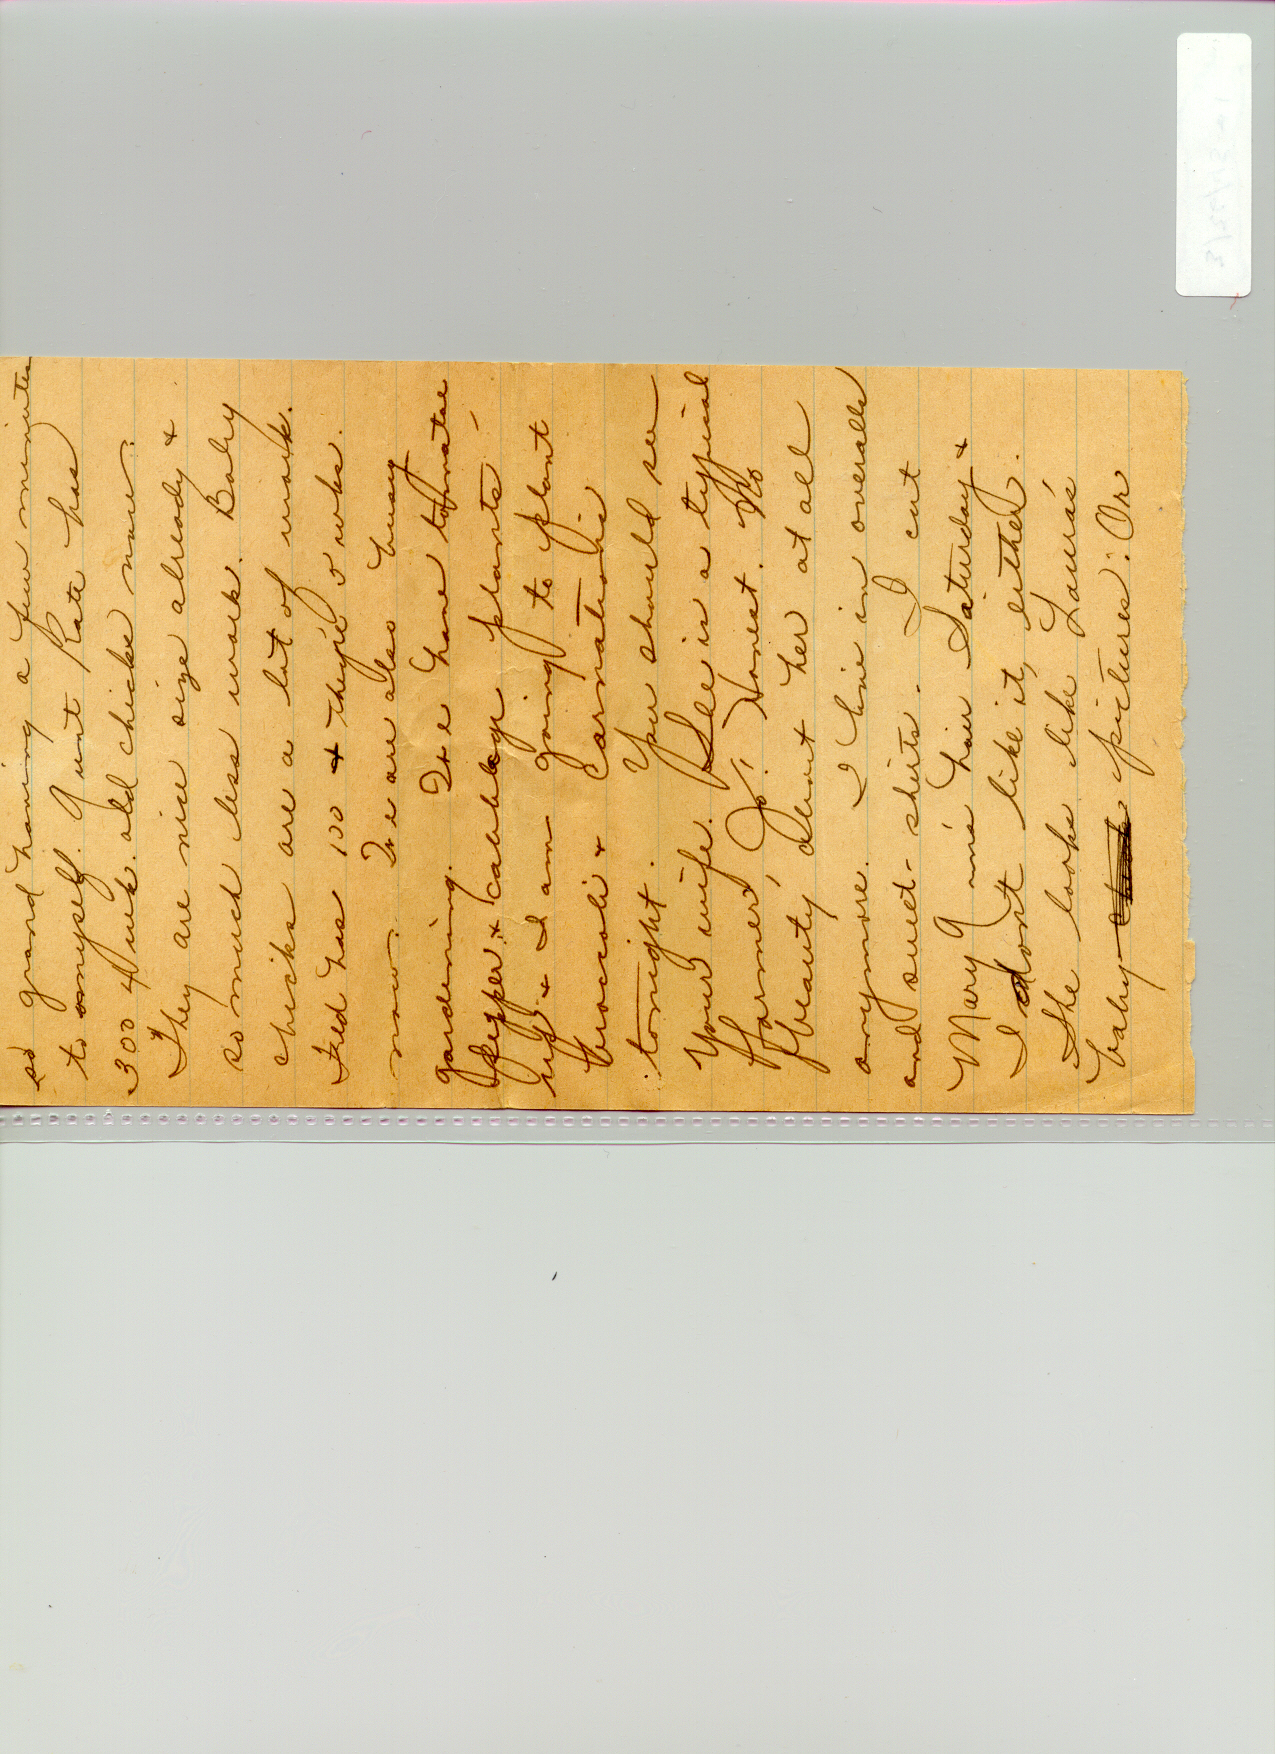 so grand having a few minutes
to myself. Aunt Kate has
300 4 wk. old chicks now.
They are nice size already &
so much less work. Baby
chicks are a lot of work.
Fred has 100 & they're 5 wks.
now. We are also busy
gardening. We have tomatoe
pepper & cabbage plants
up & I am going to plant
broccoli & carnations
tonight. You should see
your wife. She is a typical
farmer, Jo! Honest. No
beauty about her at all
anymore. I live in overalls
and sweat-shirts. I cut
Mary Ann's hair Saturday &
I don't like it, either.
She looks like Laura's
baby pictures. Or